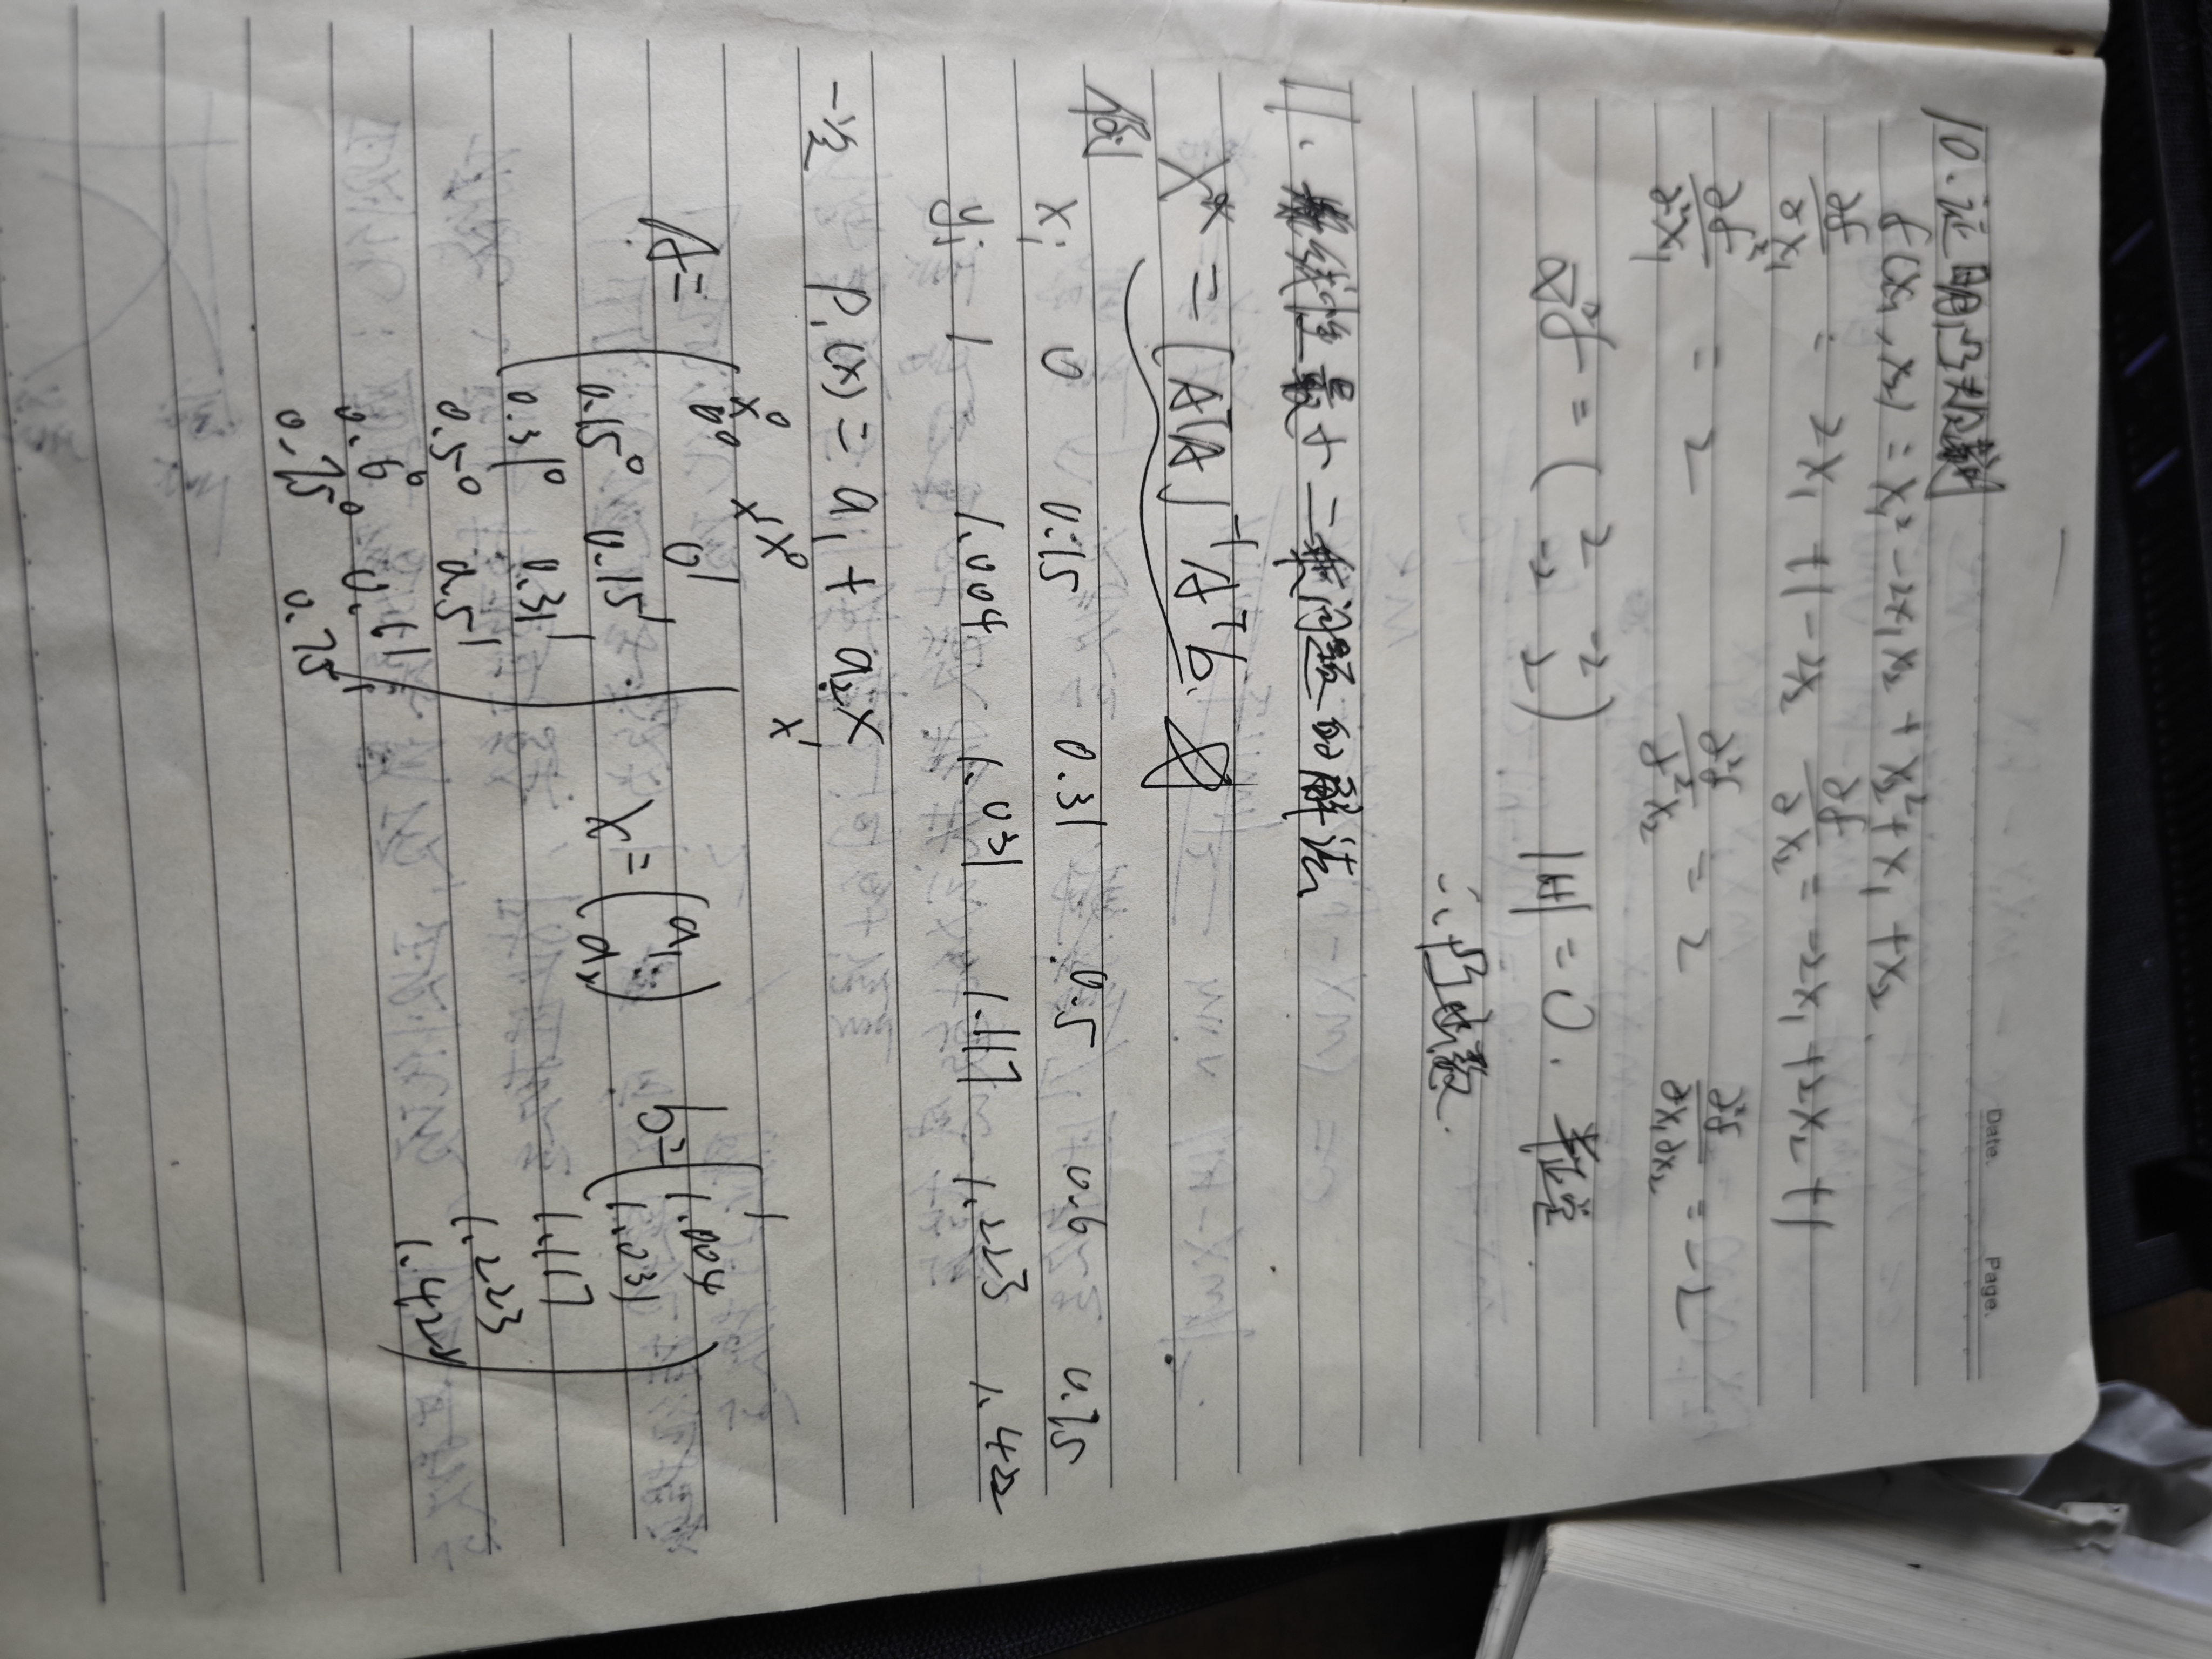 Date. Page.
10. 证明凸函数
f(x₁, x₂) = x₁² - 2x₁x₂ + x₂² + x₁ + x₂
∂f/∂x₁ = 2x₁ + 1 - 2x₂ ∂f/∂x₂ = -2x₁ + 2x₂ + 1
∂²f/∂x₁² = 2 ∂²f/∂x₂ = 2 ∂²f/∂x₁∂x₂ = -2
∇²f = ( 2 -2 -2 2 ) |H| = 0. 半正定
∴ 凸函数.
11. 线性最小二乘问题的解法
X* = (AᵀA)⁻¹Aᵀb.
例 xᵢ 0 0.15 0.31 0.5 0.6 0.75
yᵢ 1 1.004 1.031 1.117 1.223 1.422
一次 P₁(x) = a₁ + a₂x
x⁰ x¹ x⁰ x¹
A = ( 0⁰ 0¹ x = ( a₁ a₂ ) b = ( 1
0.15⁰ 0.15¹ 1.004
0.31⁰ 0.31¹ 1.031
0.5⁰ 0.5¹ 1.117
0.6⁰ 0.6¹ 1.223
0.75⁰ 0.75¹ ) 1.422 )